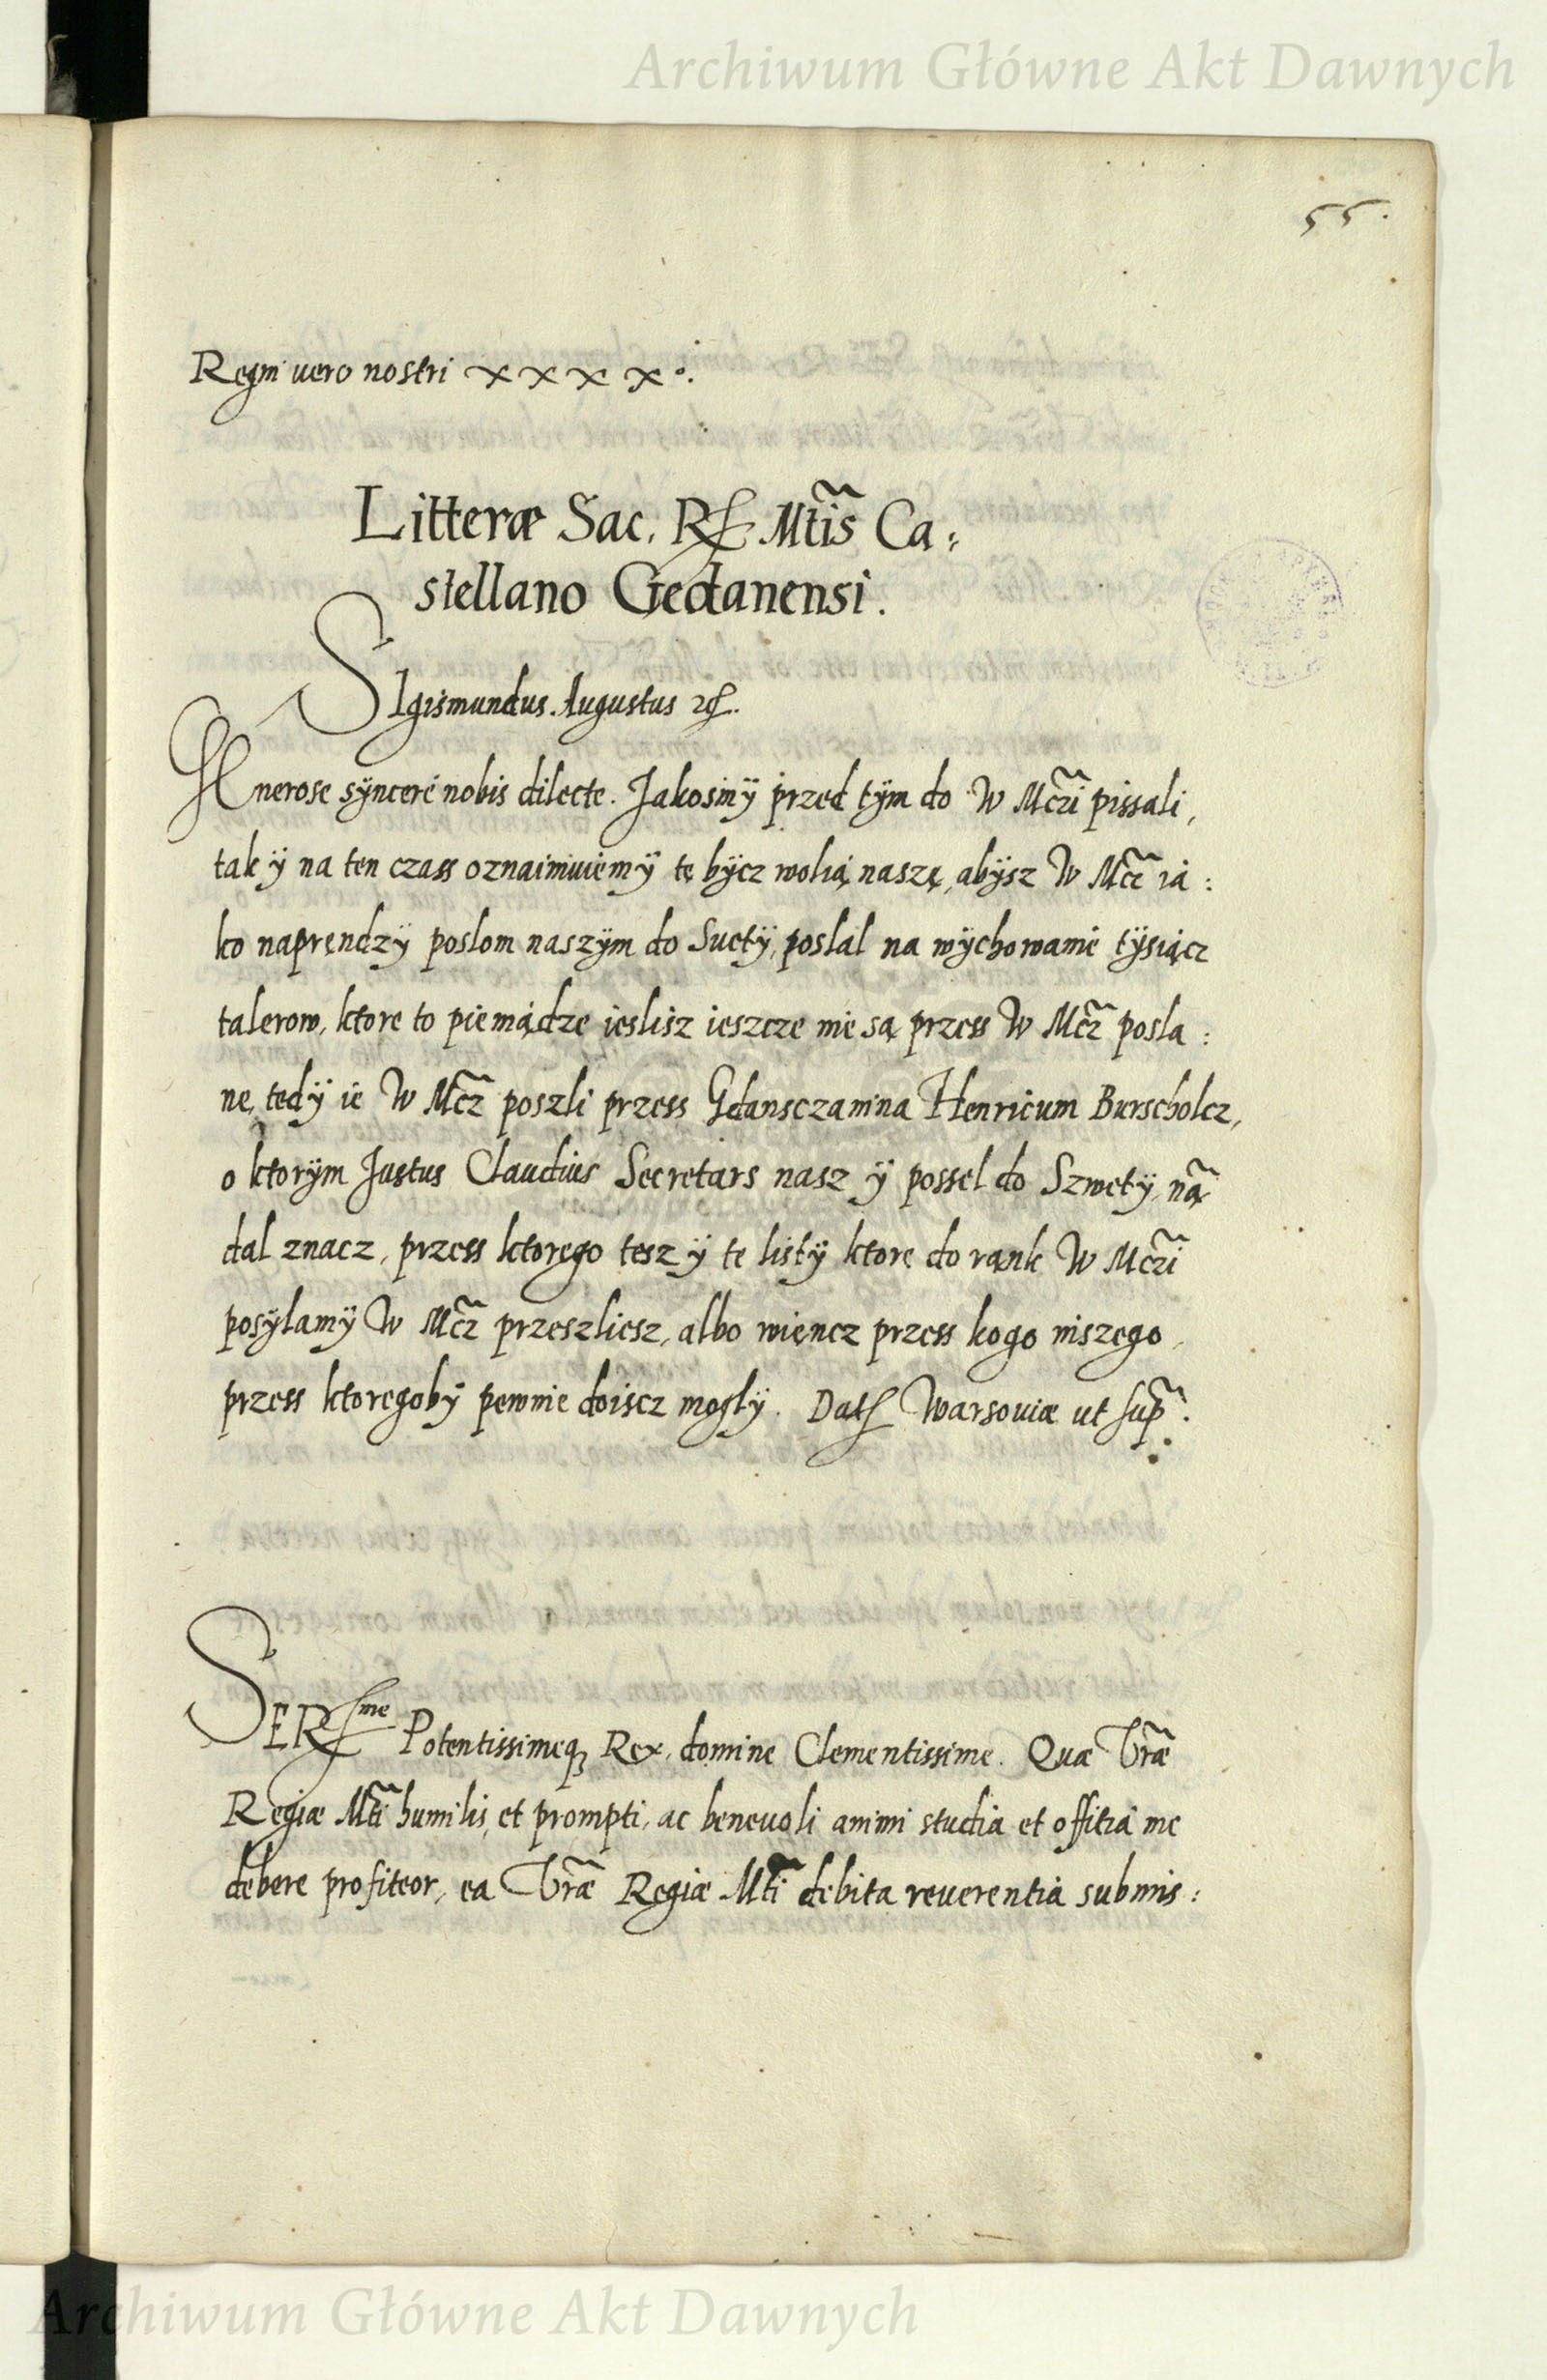 Archiwum Główne Akt Dawnych
55.
Regni uero nostri xxxx°.
Litteræ Sac. R. Mtis Ca:
stellano Gedanensi.
SIgismundus Augustus
nerose sÿncere nobis dilecte. Jakosmÿ przed tÿm do W Mczi pissali,
tak ÿ na ten czass oznaimuiemÿ tę bÿcz wolią naszę, abÿsz W Mcz iá:
ko naprendzÿ poslom naszÿm do Suetÿ, poslál na wÿchowanié tÿsiącz
talerow, ktore to pieniądze ieslisz ieszcze nie są przess W Mcz posla:
ne, tedÿ ie W Mcz poszli przess Gdansczanina Henricum Burscholcz,
o ktorÿm Justus Claudius Secretars nasz ÿ possel do Szwetÿ, ną
dal znacz, przess ktorego tesz ÿ te listÿ ktore do rąnk W Mczi
posÿlamÿ W Mcz przeszliesz, albo więncz przess kogo niszego,
przess ktoregobÿ pewnie doiscz moglÿ. Dat Warsouiæ ut sup.
SER^me Potentissimeq Rex, domine Clementissime. Quæ Vræ
Regiæ Mti humilis, et prompti, ac beneuoli animi studia et offitia me
debere profiteor, ea Vræ Regiæ Mti debita reuerentia submis:
Archiwum Główne Akt Dawnych